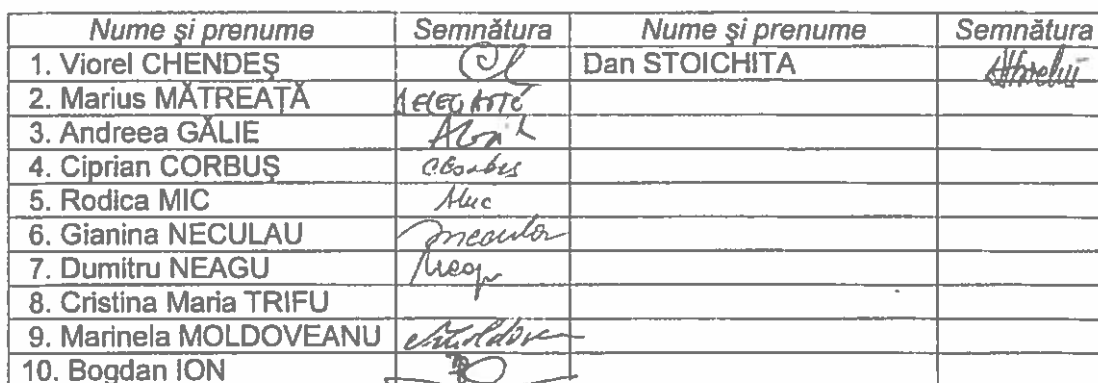 Nume și prenume Semnătura Nume și prenume Semnătura
1. Viorel CHENDEȘ Dan STOICHITA
2. Marius MĂTREAȚĂ
3. Andreea GĂLIE
4. Ciprian CORBUȘ CCorbuș
5. Rodica MIC
6. Gianina NECULAU
7. Dumitru NEAGU
8. Cristina Maria TRIFU
9. Marinela MOLDOVEANU
10. Bogdan ION